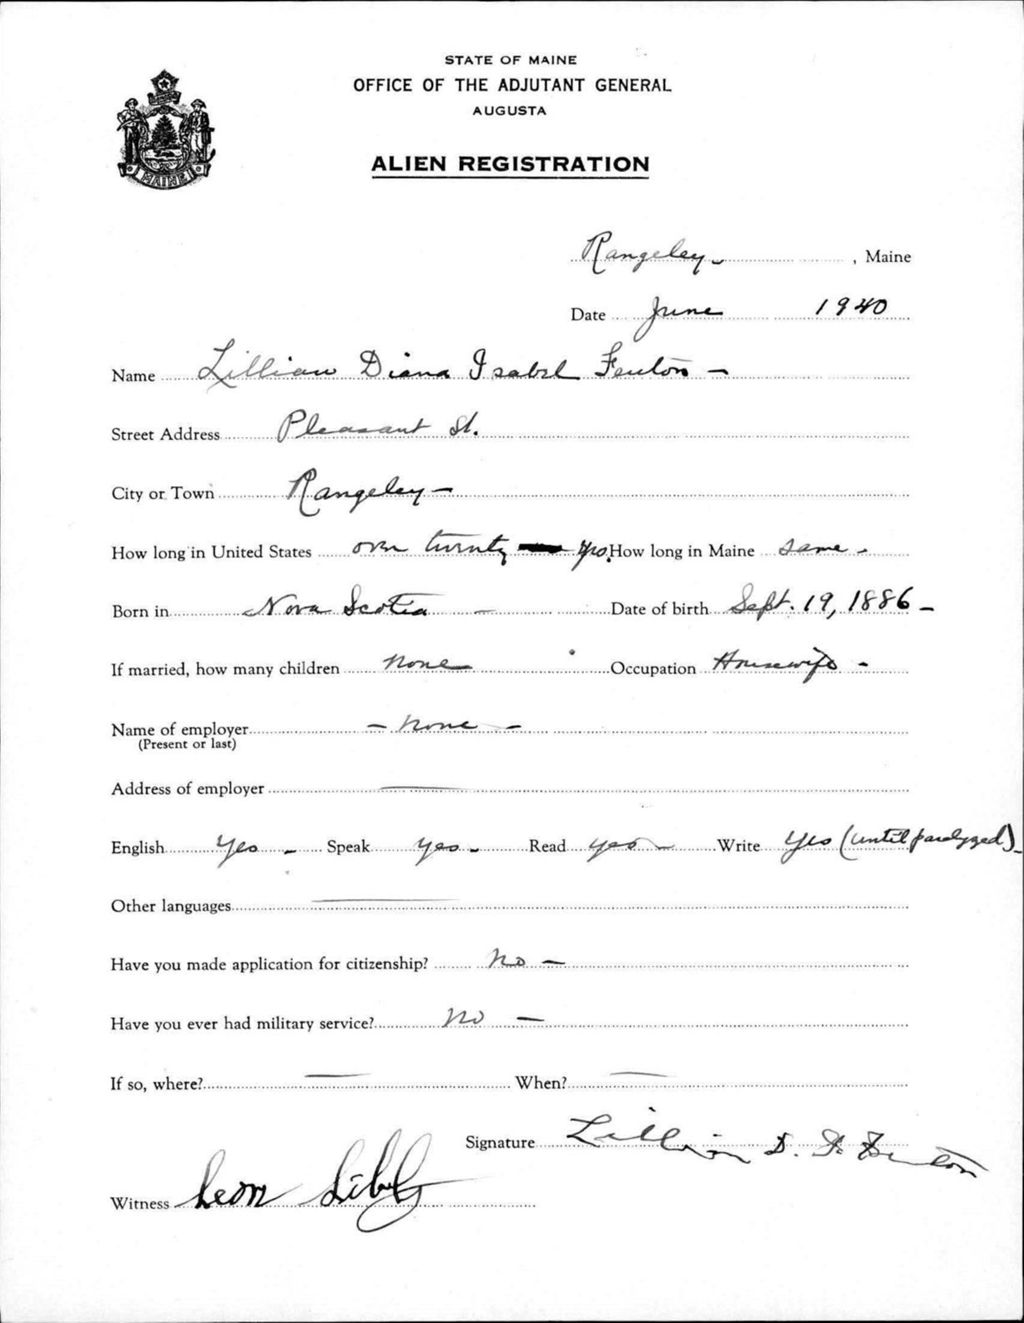 STATE OF MAINE
OFFICE OF THE ADJUTANT GENERAL
AUGUSTA
ALIEN REGISTRATION
MAINE
Rangeley - , Maine
Date June 1940
Name Lillian Diana Isabel Fenton -
Street Address Pleasant St.
City or Town Rangeley -
How long in United States over twenty yrs. How long in Maine same -
Born in Nova Scotia - Date of birth Sept. 19, 1886 -
If married, how many children none Occupation Housewife -
Name of employer - none -
(Present or last)
Address of employer —
English Yes - Speak yes - Read yes - Write Yes (until paralyzed) -
Other languages —
Have you made application for citizenship? No -
Have you ever had military service? No -
If so, where? — When? —
Signature Lillian D. I. Fenton
Witness Leon Libby